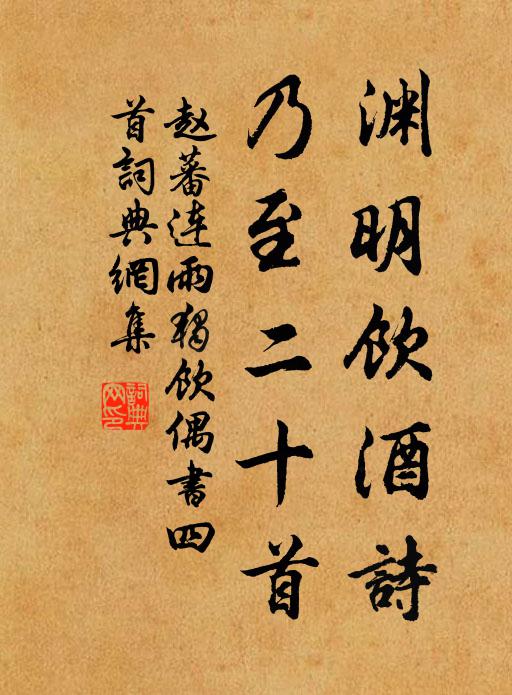 渊明饮酒詩
乃至二十首
赵蕃连雨独饮偶書四
首詞典網集
詞典
网印